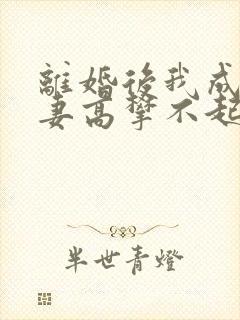 離婚後我成
妻高攀不起
半世青燈